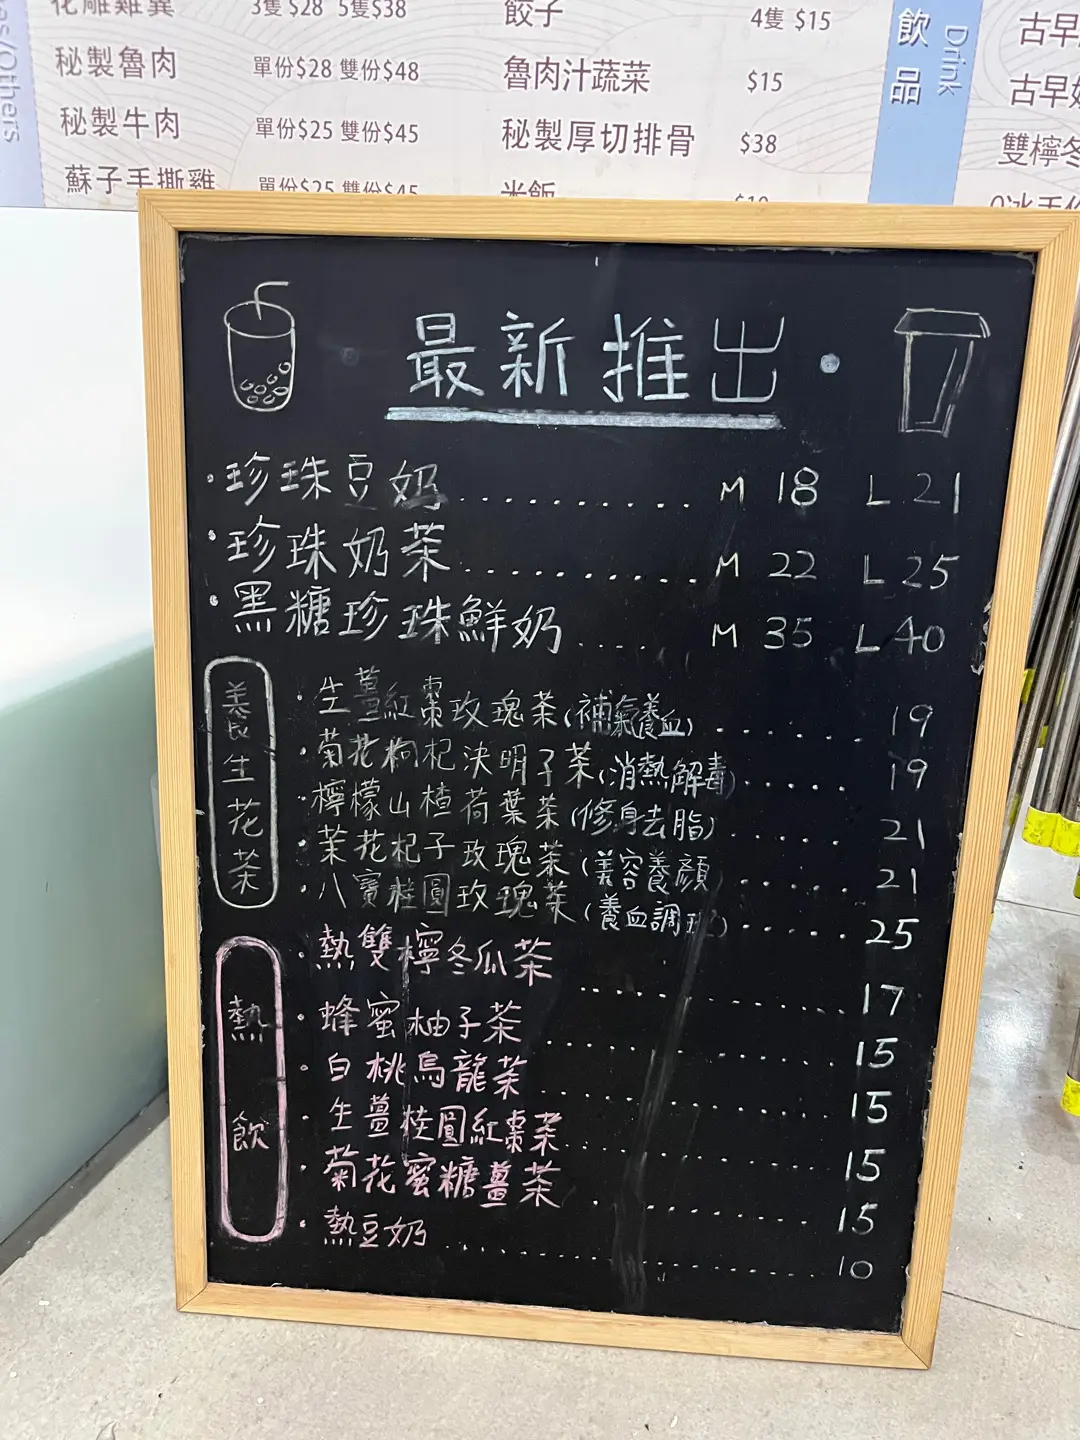 花雕雞翼 3隻 $28 5隻$38
秘製魯肉 單份$28 雙份$48
秘製牛肉 單份$25 雙份$45
蘇子手撕雞 單份$25 雙份$45
餃子 4隻 $15
魯肉汁蔬菜 $15
秘製厚切排骨 $38
米飯 $10
es/Others
飲品 Drink
古早
古早
雙檸冬
最新推出
·珍珠豆奶.......... M 18 L 21
·珍珠奶茶.......... M 22 L 25
·黑糖珍珠鮮奶.... M 35 L 40
養生花茶
·生薑紅棗玫瑰茶(補氣養血)....... 19
·菊花枸杞決明子茶(消熱解毒)..... 19
·檸檬山楂荷葉茶(修身去脂)..... 21
·茉花杞子玫瑰茶(美容養顏)..... 21
·八寶桂圓玫瑰茶(養血調理)..... 25
熱飲
·熱雙檸冬瓜茶........ 17
·蜂蜜柚子茶........ 15
·白桃烏龍茶........ 15
·生薑桂圓紅棗茶........ 15
·菊花蜜糖薑茶........ 15
·熱豆奶............ 10